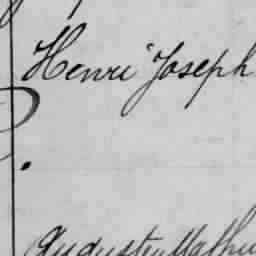 Henri Joseph
Augustin Mathieu